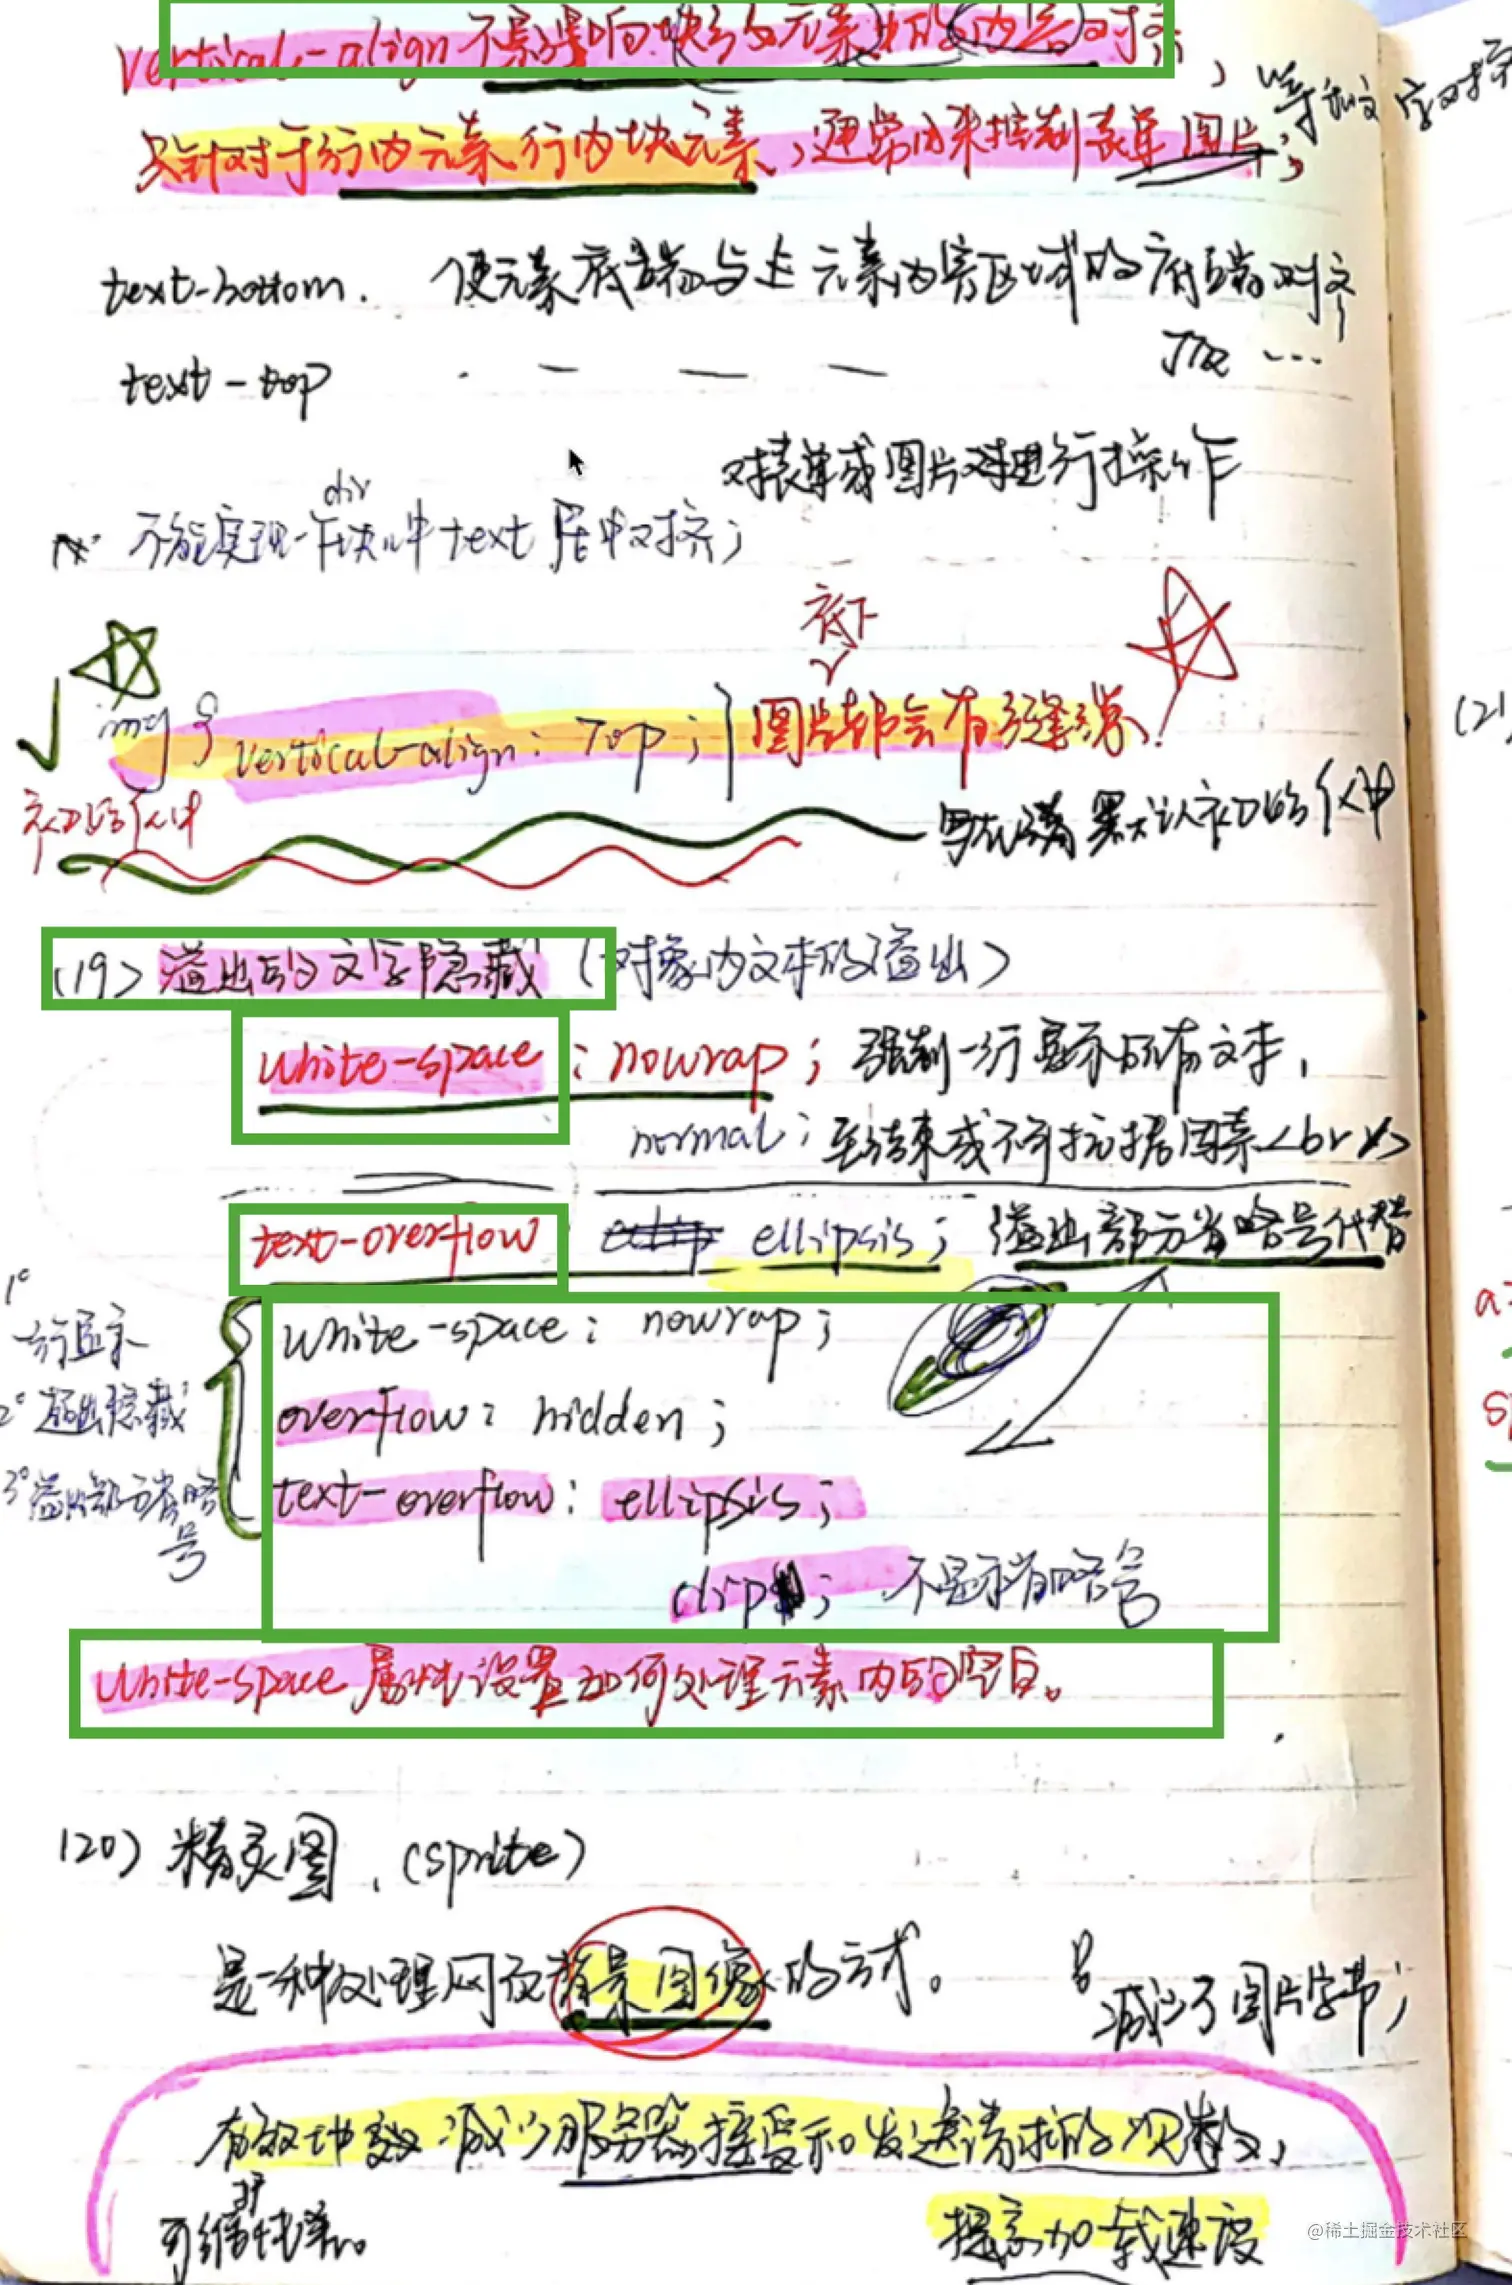 vertical-align 不影响块级元素中的内容对齐
只针对于行内元素 行内块元素,通常用来控制表单 图片; 等和文字对齐
text-bottom. 使元素底端与父元素内容区域的底端对齐
text-top . — — — 顶 ...
对表单或图片对进行操作
不能实现一个div块儿中text居中对齐;
底下
img { vertical-align: Top; } 图片都会有缝隙
初始化中
写在清默认初始化中
(19) 溢出的文字隐藏 (对象内文本的溢出)
white-space : nowrap; 强制一行显示所有文本,
normal;
text-overflow ellipsis; 溢出部分省略号代替
1° 一行显示
2° 超出隐藏
3° 溢出部分省略号
white-space: nowrap;
overflow: hidden;
text-overflow: ellipsis;
clip; 不显示省略号
white-space 属性设置如何处理元素内的空白。
(20) 精灵图. (sprite)
是一种处理网页背景图像的方式。 减少了图片字节;
有效地减少服务器接受和发送请求的次数,
提高加载速度
@稀土掘金技术社区
(2)